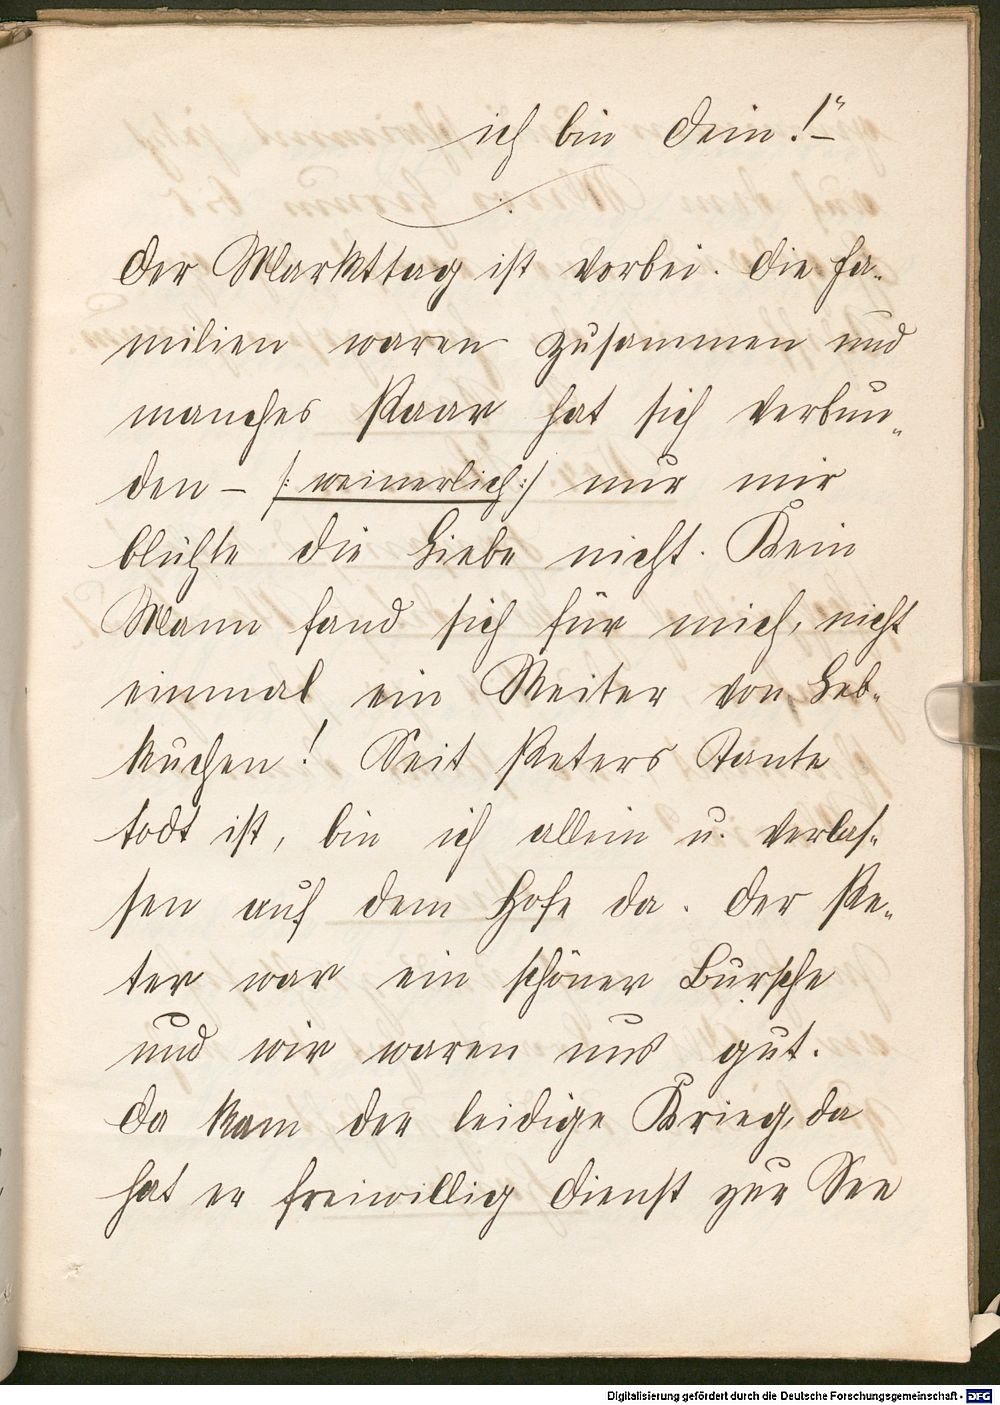 ich bin dein!“–
Der Markttag ist vorbei. Die Fa-
milien waren zusammen und
manches Paar hat sich verbun-
den – /: weinerlich :/ nur mir
blühte die Liebe nicht. Kein
Mann fand sich für mich, nicht
einmal ein Reiter von Leb-
kuchen! Seit Peters Tante
todt ist, bin ich allein u. verlas-
sen auf dem Hofe da. Der Pe-
ter war ein schöner Bursche
und wir waren uns gut.
Da kam der leidige Krieg, da
hat er freiwillig Dienst zur See
Digitalisierung gefördert durch die Deutsche Forschungsgemeinschaft - DFG